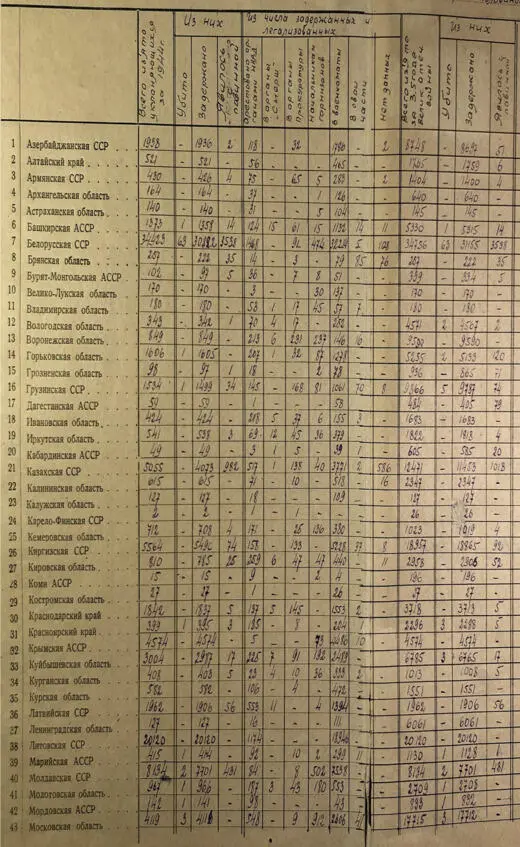 Всего изъято уклоняющихся за 1944г.
Из них
Убито
Задержано
Явилось с повинной
Из числа задержанных и легализованных
Арестовано органами НКВД
В органы "Смерш"
В органы Прокуратуры
В военкоматы
В свои части
Нет данных
Из них
Убито
Задержано
1 Азербайджанская ССР 1938 - 1936 2 118 - 32 - 1786 - 2 8748 - 8697 51
2 Алтайский край 521 - 521 - 56 - - - 465 - -
3 Армянская ССР 430 - 426 4 75 - 65 5 283 - 2 1404 - 1400 4
4 Архангельская область 164 - 164 - 37 - - 1 126 - - 640 - 640 -
5 Астраханская область 140 - 140 - 31 - - 5 104 - - 145 - 145 -
6 Башкирская АССР 1373 1 1358 14 124 15 61 15 1132 14 11 5330 1 5315 14
7 Белорусская ССР 63 3538 - 92 474 5 108 34756 63 31155 3538
8 Брянская область 257 - 222 35 14 - 3 - 79 85 76 257 - 222 35
9 Бурят-Монгольская АССР 102 - 97 5 36 - 7 8 51 - - 339 - 334 5
10 Велико-Лукская область 170 - 170 - 3 - - 30 137 - - 170 - 170 -
11 Владимирская область 180 - 180 - 53 1 17 45 57 7 - 180 - 180 -
12 Вологодская область 343 - 342 1 70 4 17 - 252 - - 4571 2 4567 2
13 Воронежская область 849 - 849 - 213 6 231 237 146 16 - 9590 - 9590 -
14 Горьковская область 1606 1 1605 - 207 1 32 87 1278 - - 5255 2 5133 120
15 Грозненская область 98 - 97 1 18 - - 2 78 - - 936 - 865 71
16 Грузинская ССР 1534 1 1499 34 145 - 168 81 1061 70 8 9866 5 9787 74
17 Дагестанская АССР 59 - 59 - 1 - - - 58 - - 484 - 405 79
18 Ивановская область 424 - 424 - 218 5 37 6 155 3 - 1683 - 1683 -
19 Иркутская область 541 - 538 3 69 12 45 36 379 - - 1822 - 1818 4
20 Кабардинская АССР 49 - 49 - 3 1 5 - 39 1 - 605 - 585 20
21 Казахская ССР 5055 - 4073 982 517 1 138 40 3771 2 586 12471 - 11453 1018
22 Калининская область 615 - 615 - 71 - 10 - 518 - 16 2347 - 2347 -
23 Калужская область 127 - 127 - 18 - - - 109 - - 127 - 127 -
24 Карело-Финская ССР 2 - 2 - 1 - - - 1 - - 26 - 26 -
25 Кемеровская область 712 - 708 4 171 - 25 136 380 - - 1023 - 1019 4
26 Киргизская ССР 5564 - 5490 74 158 - 133 - 5228 37 8 - 18865 92
27 Кировская область 810 - 785 25 259 6 47 47 440 - 11 2958 - 2906 52
28 Коми АССР 15 - 15 - 9 - - 2 4 - - 196 - 196 -
29 Костромская область 27 - 27 - 1 - - - 26 - - 27 - 27 -
30 Краснодарский край 1842 - 1837 5 137 5 145 - 1553 2 - 3718 - 3713 5
31 Красноярский край 399 1 395 3 185 - 8 - 204 1 - 2296 3 2288 5
32 Крымская АССР 4574 - 4574 - 5 - - 73 4486 10 - 4574 - 4574 -
33 Куйбышевская область 3004 - 2987 17 225 7 91 192 2489 - - 6785 3 6765 17
34 Курганская область 408 - 403 5 23 4 10 36 333 2 - 1013 - 1008 5
35 Курская область 582 - 582 - 106 - 4 - 472 - - 1551 - 1551 -
36 Латвийская ССР 1962 - 1906 56 553 11 - 4 1394 - - 1962 - 1906 56
37 Ленинградская область 127 - 127 - 16 - - - 111 - - 6061 - 6061 -
38 Литовская ССР 20120 - 20120 - 1174 - - - - - 20120 - 20120 -
39 Марийская АССР 415 1 414 - 92 - 10 2 299 11 - 1130 1 1128 1
40 Молдавская ССР 8134 2 7701 431 84 - 8 502 7538 - - 8134 2 7701 431
41 Молотовская область 967 1 966 - 187 3 43 180 553 - - 2709 1 2708 -
42 Мордовская АССР 142 1 141 - 98 - - - 43 - - 893 1 892 -
43 Московская область 4119 3 4116 - 548 - 9 912 2606 41 - 17715 3 17712 -